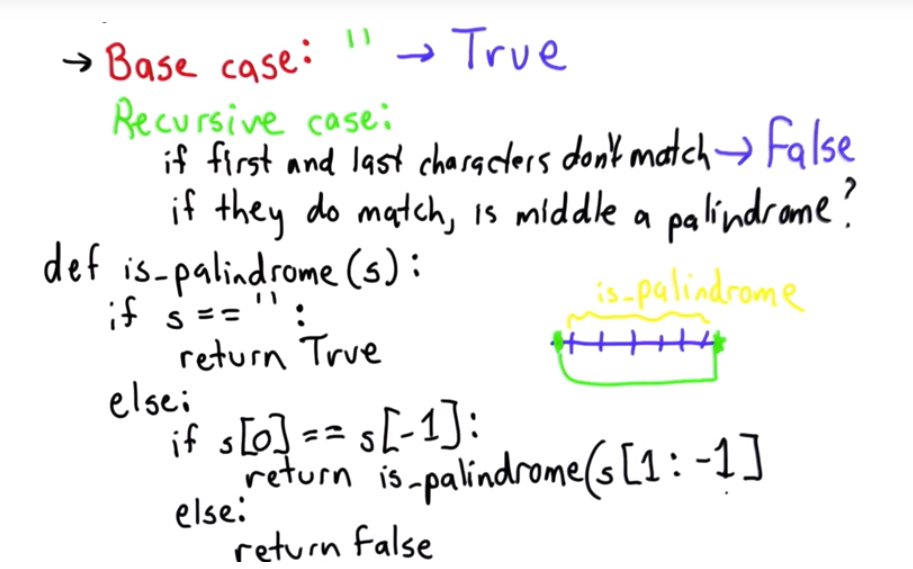 → Base case: '' → True
Recursive case:
if first and last characters don't match → False
if they do match, is middle a palindrome?
def is_palindrome(s):
if s == '' :
return True
is_palindrome
else:
if s[0] == s[-1]:
return is_palindrome(s[1:-1]
else:
return False